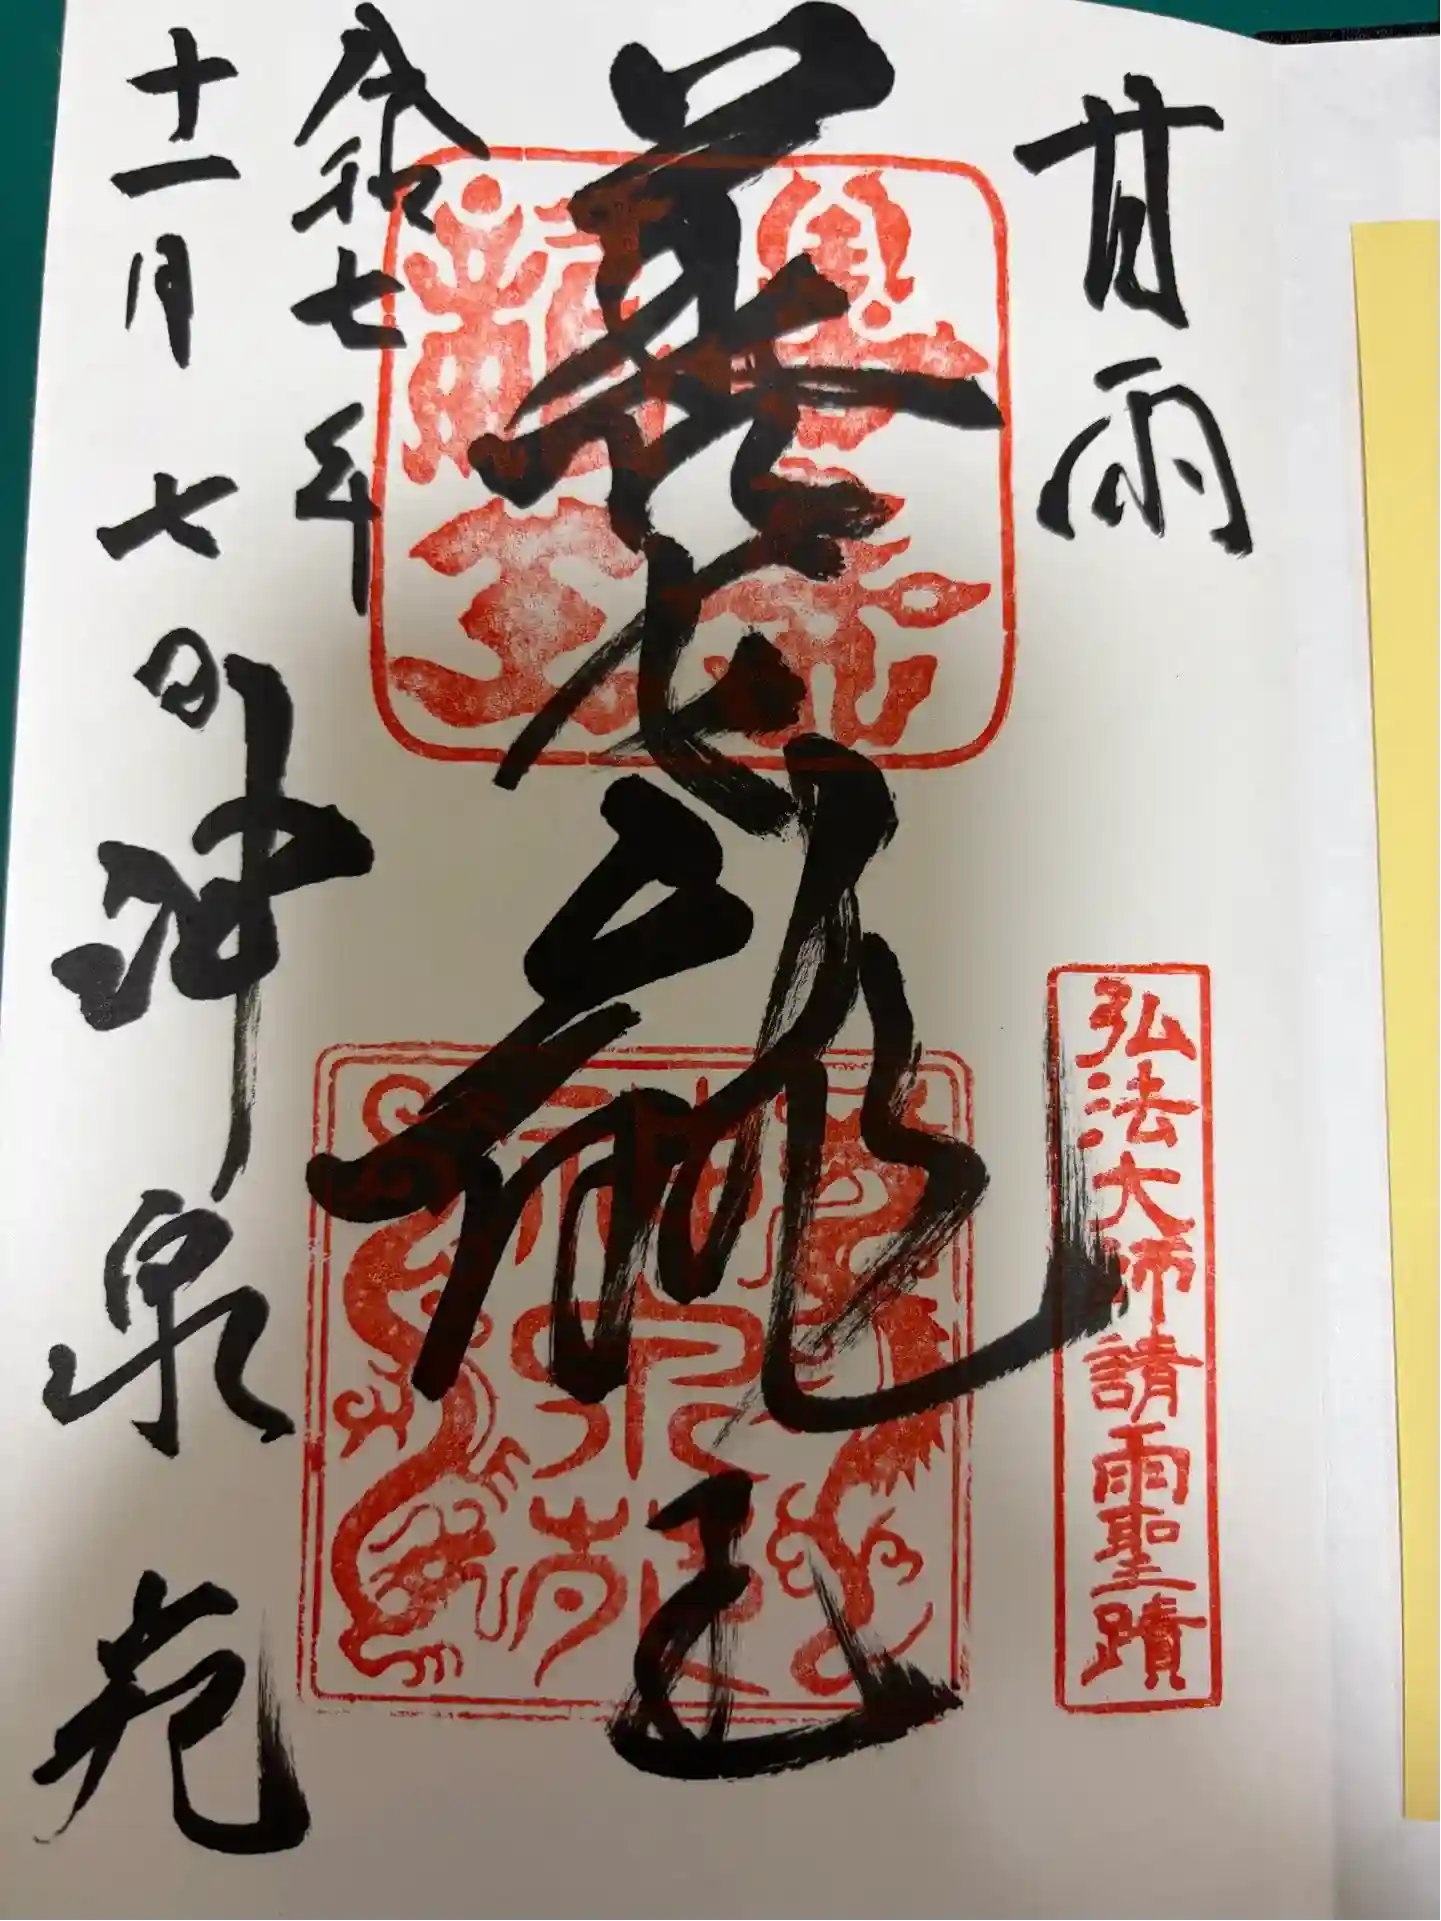 甘雨
弘法大師請雨聖蹟
善女龍王
令和七年
十一月七日
神泉苑